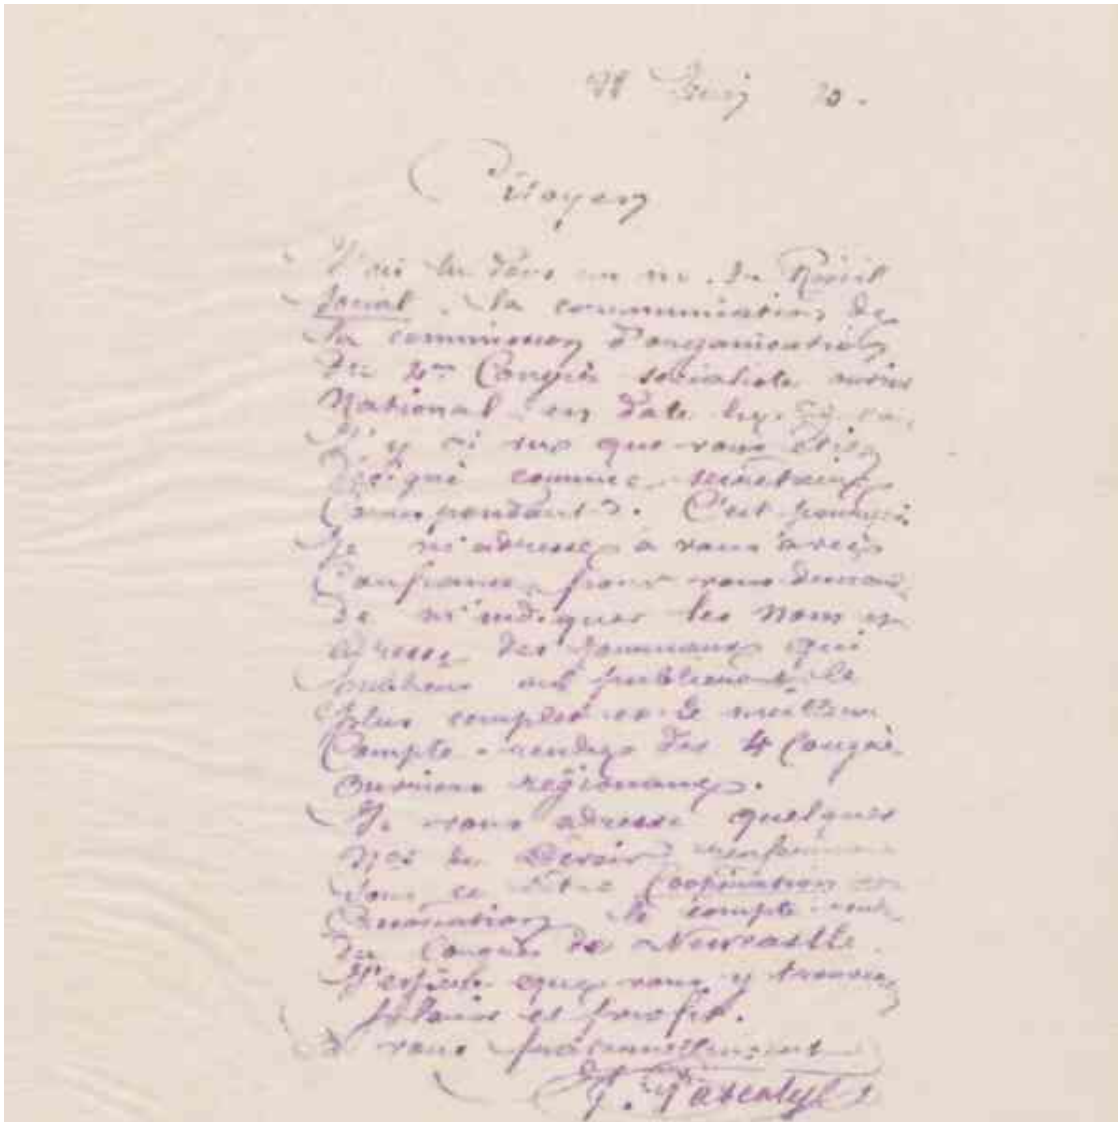 Juin 80.
Citoyen
J'ai lu dans un no. du Réveil
Social la communication de
la commission d'organisation
du Congrès socialiste
National en date
J'y ai vu que vous étiez
désigné comme secrétaire
Correspondant. C'est pourquoi
je m'adresse à vous avec
Confiance pour vous deman
de m'indiquer les nom et
adresse des journaux qui
publient ont publié le
plus complet et le meilleur
Compte-rendu des 4 Congrès
ouvriers régionaux.
Je vous adresse quelques
nos du Devoir renfermant
sous ce titre Coopération
le compte rendu
du Congrès de Newcastle.
J'espère que vous y trouverez
plaisir et profit.
à vous fraternellement
P. Pascaly